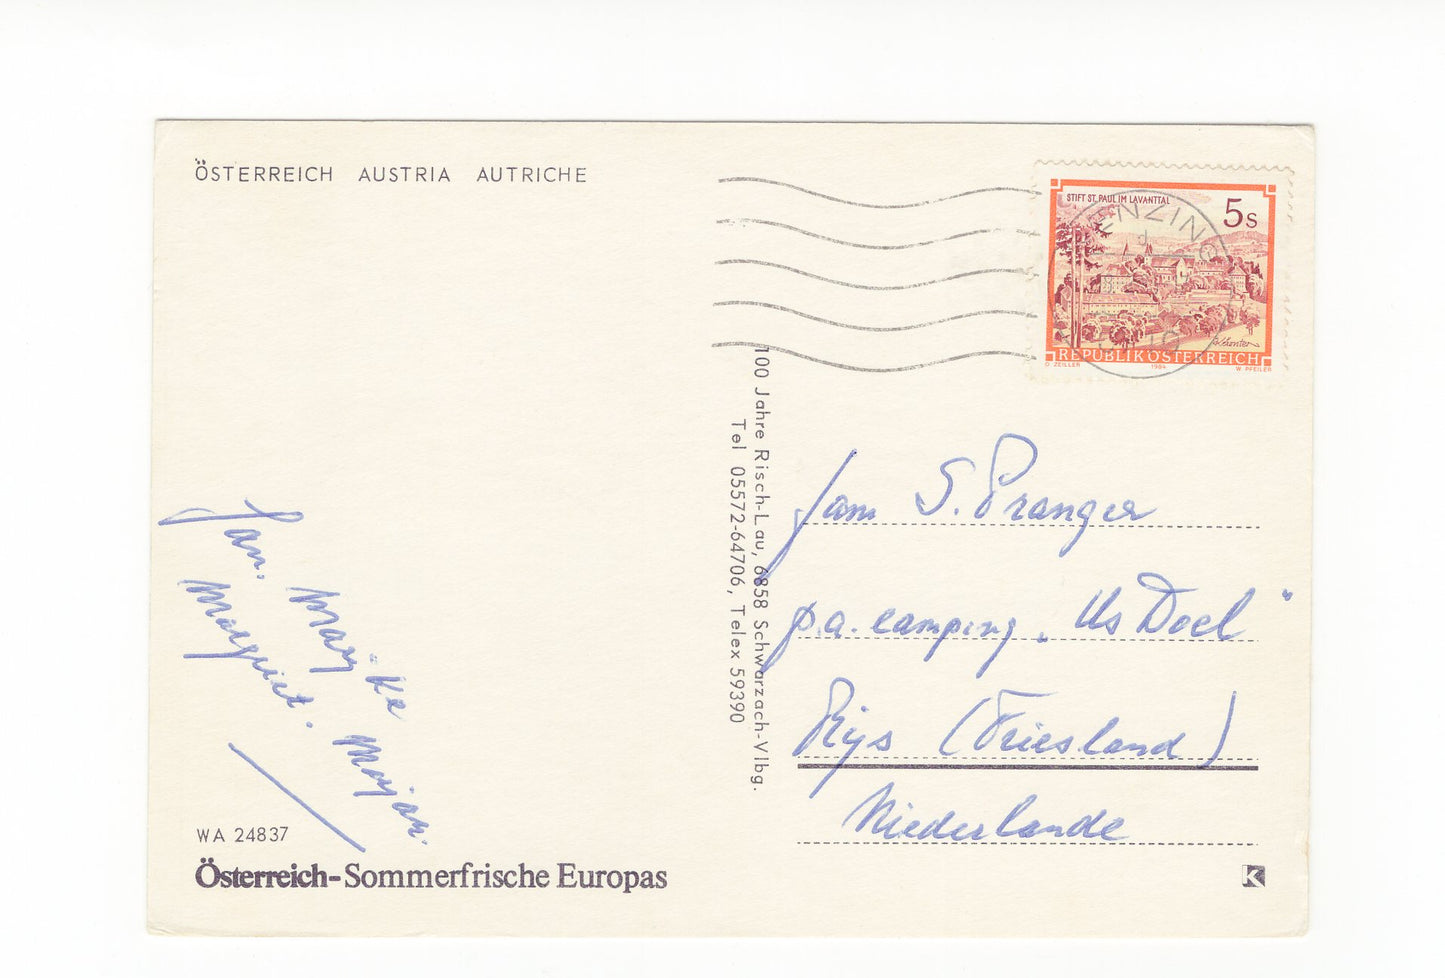 ÖSTERREICH AUSTRIA AUTRICHE
STIFT ST. PAUL IM LAVANTTAL
5s
REPUBLIK ÖSTERREICH
O. ZEILLER 1984 W. PFEILER
100 Jahre Risch-Lau, 6858 Schwarzach-Vlbg.
Tel 05572-64706, Telex 59390
Jan. Marijke
Margriet. Marjan.
Fam S. Pranger
p.a. camping. Us Doel"
Rijs (Friesland)
Niederlande
WA 24837
Österreich-Sommerfrische Europas
K